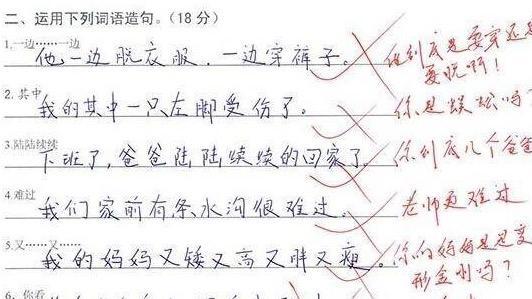 二、运用下列词语造句。(18分)
1.一边……一边
他一边脱衣服，一边穿裤子。
他到底是要穿还是
要脱啊！
2.其中
我的其中一只左脚受伤了。
你是蜈蚣吗？
3.陆陆续续
下班了，爸爸陆陆续续的回家了。
你到底几个爸爸
4.难过
我们家前有条水沟很难过。
老师更难过
5.又……又……
我的妈妈又矮又高又胖又瘦。
你的妈妈是变
形金刚吗？
6.你看